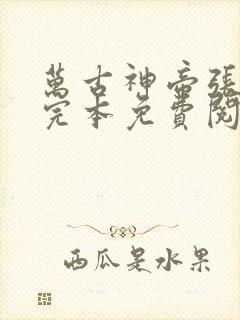 萬古神帝張
完本免費閱
西瓜是水果